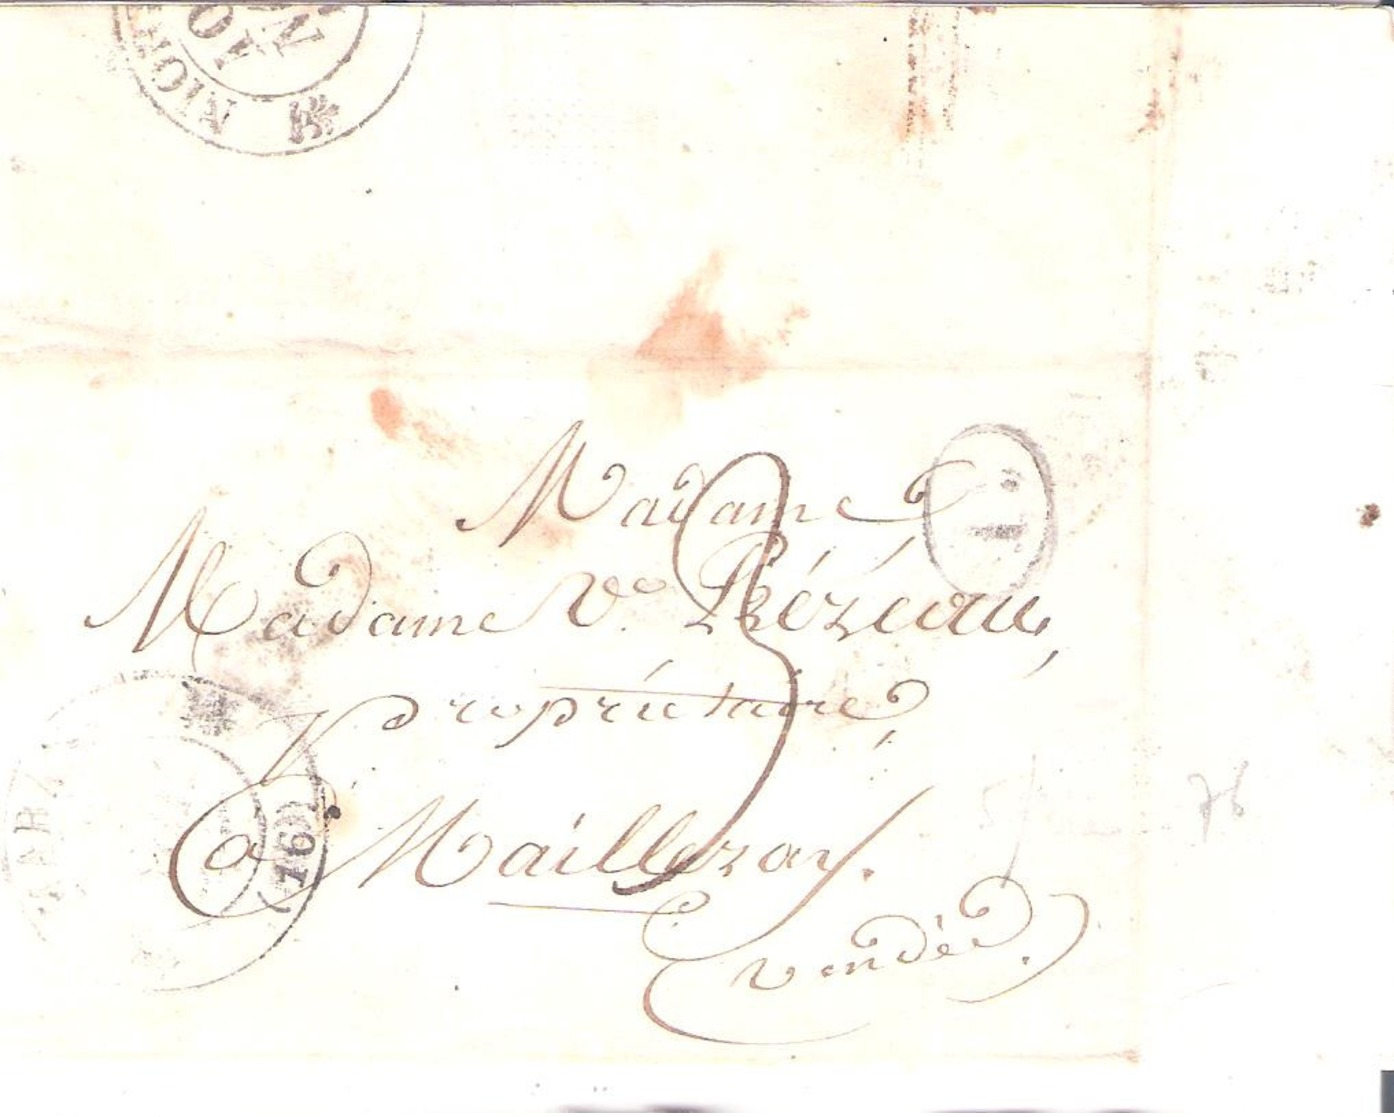 NIOR
10
Madame
Madame Ve. Bézeau,
propriétaire,
à Maillezay.
vendée.
3
1
(16)